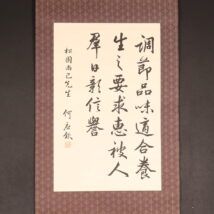 调節品味適合養
生之要求惠被人
羣日彰信譽
松圃西巳先生
何應欽